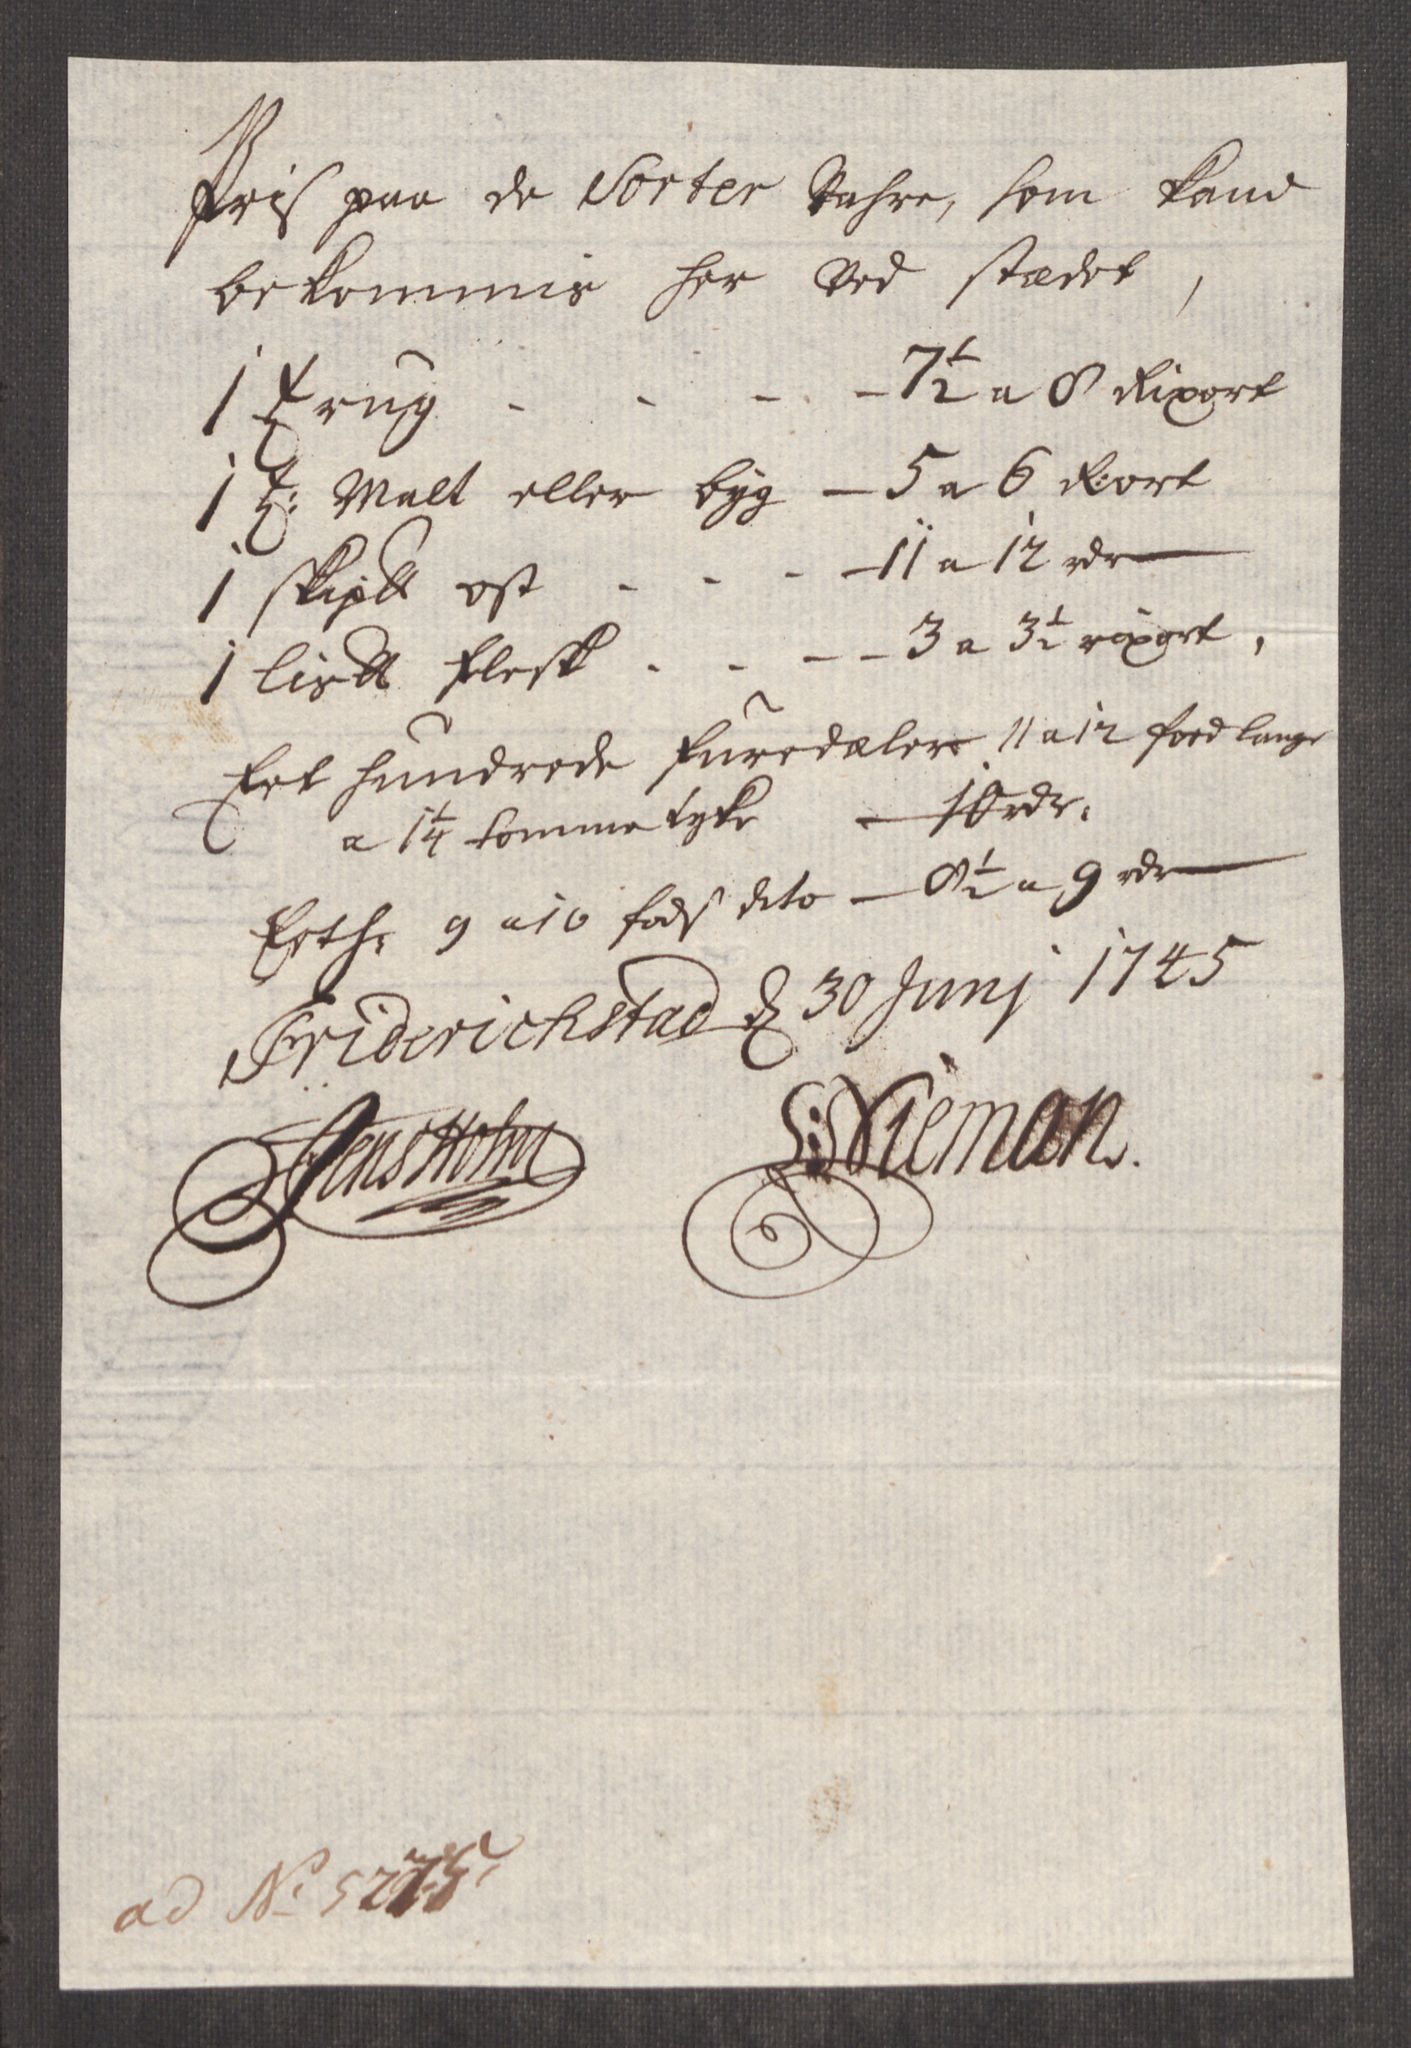 Pris paa de Sorter Vahre, som kand
bekommis her Ved stædet,
1 t rug - - - - 7½ a 8 Rixort
1 t: Malt eller byg - 5 a 6 R:ort
1 skip℔ ost - - - - 11 a 12 rdr
1 lis℔ flesk - - - - 3 a 3½ rixort,
Eet hundrede furedæler 11 a 12 foed lange
a 1¼ tomme tyke - 10 rdr.
9 a 10 fods dito - 8½ a 9 rdr
Friderichstad d 30 Junj 1745
Jens Holm S: Nieman.
ad No 5275